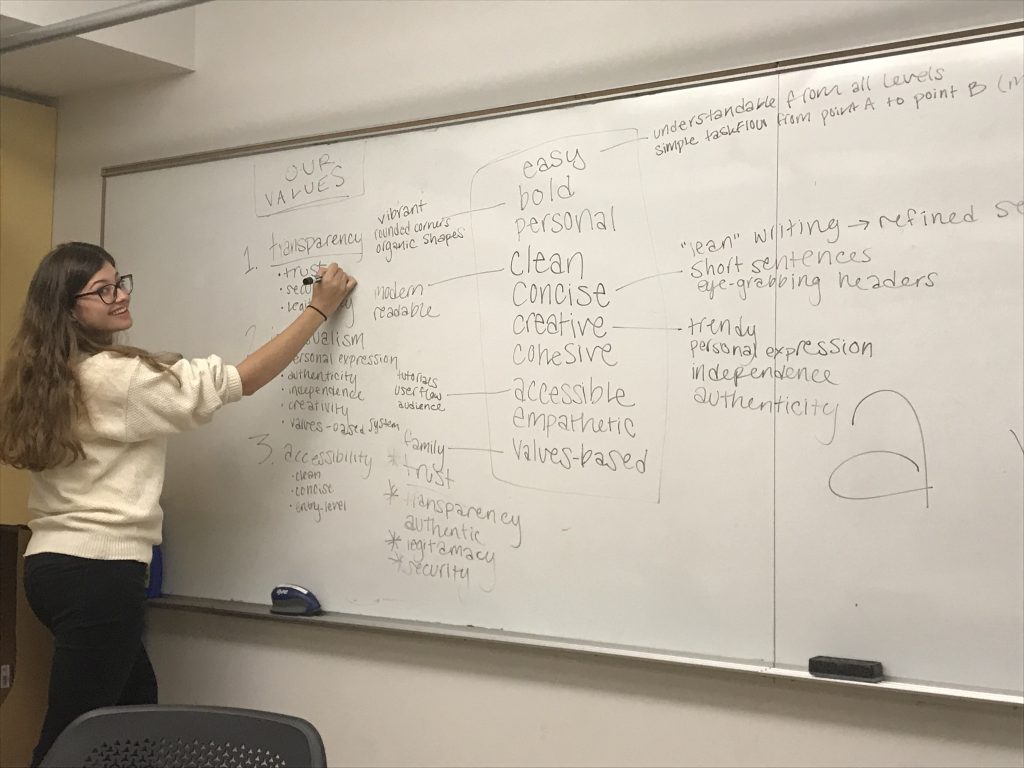 OUR
VALUES
1. transparency
• trust
2.
personal expression
• authenticity
• independence
• creativity
• values-based system
3. accessibility
• clean
• concise
• entry-level
vibrant
rounded corners
organic shapes
modern
readable
tutorials
userflow
audience
family
* trust
* transparency
authentic
* legitamacy
* security
easy
bold
personal
clean
concise
creative
cohesive
accessible
empathetic
values-based
understandable from all levels
simple taskflow from point A to point B
"lean" writing → refined
short sentences
eye-grabbing headers
trendy
personal expression
independence
authenticity
a